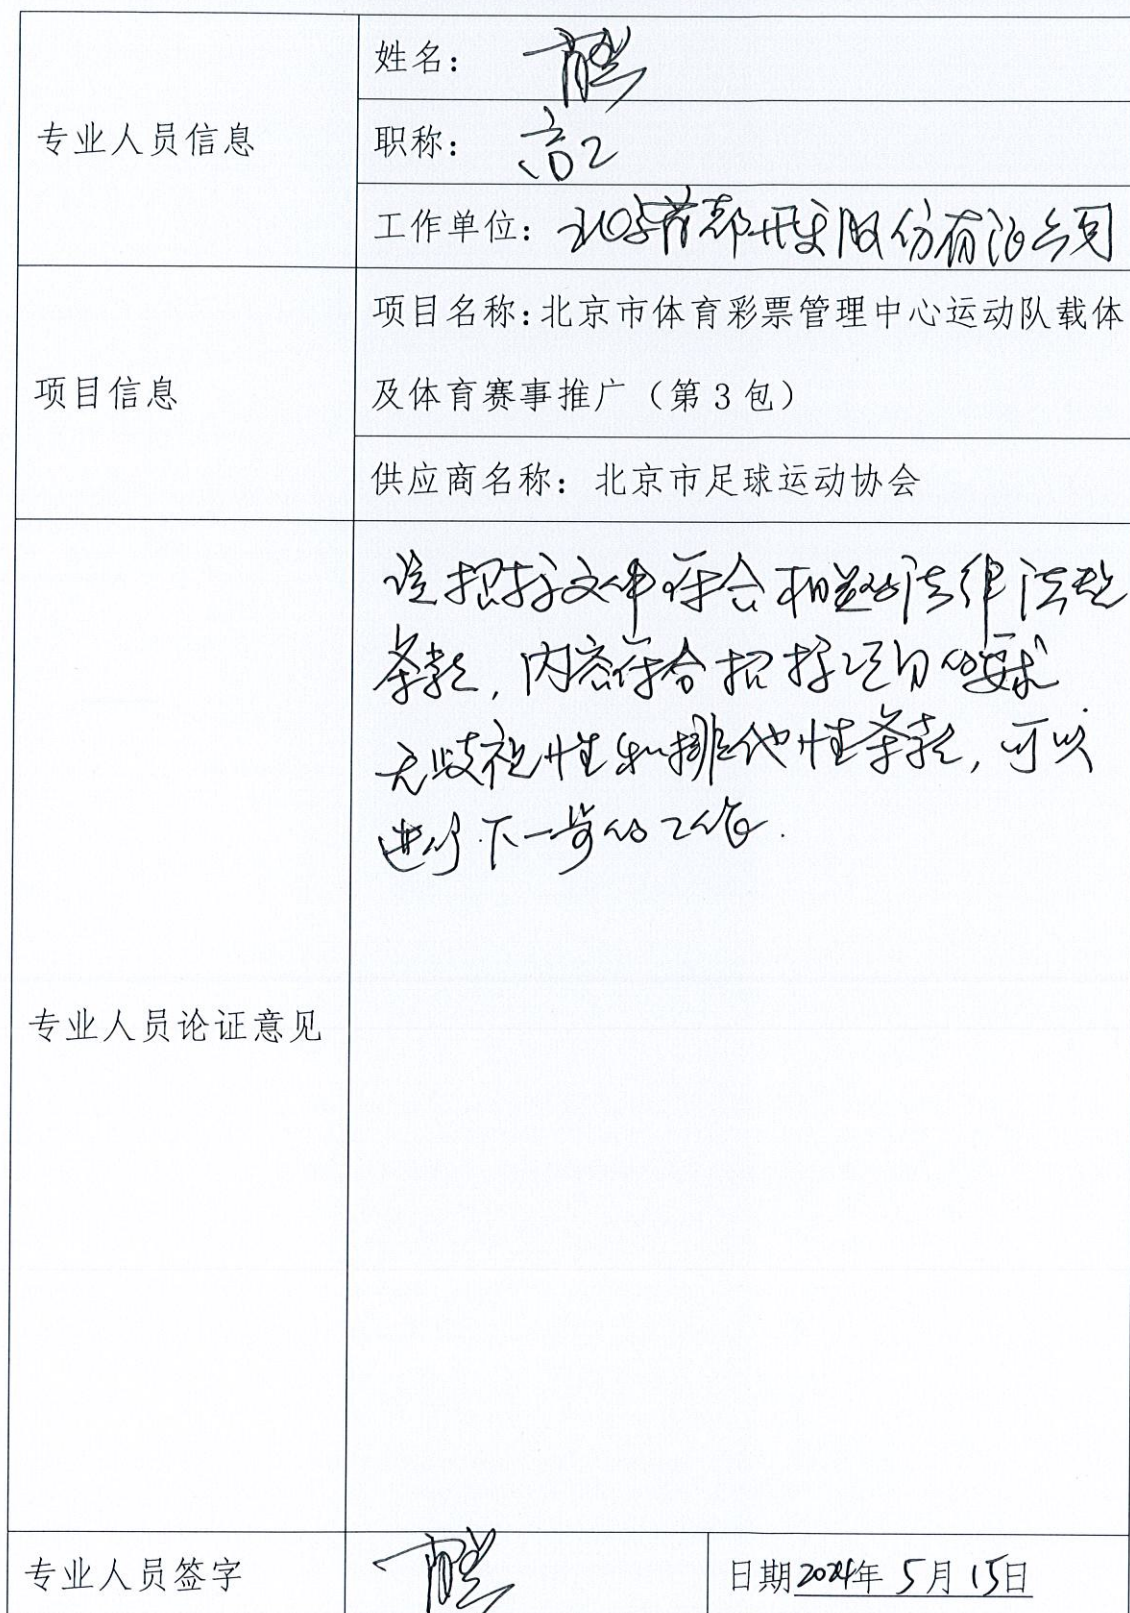 姓名：
专业人员信息
职称：高工
工作单位：北京首都开发股份有限公司
项目名称：北京市体育彩票管理中心运动队载体
项目信息
及体育赛事推广（第3包）
供应商名称：北京市足球运动协会
该招标文件符合相关的法律法规
条款，内容符合招标项目的要求
无歧视性和排他性条款，可以
进行下一步的工作.
专业人员论证意见
专业人员签字
日期2024年5月15日